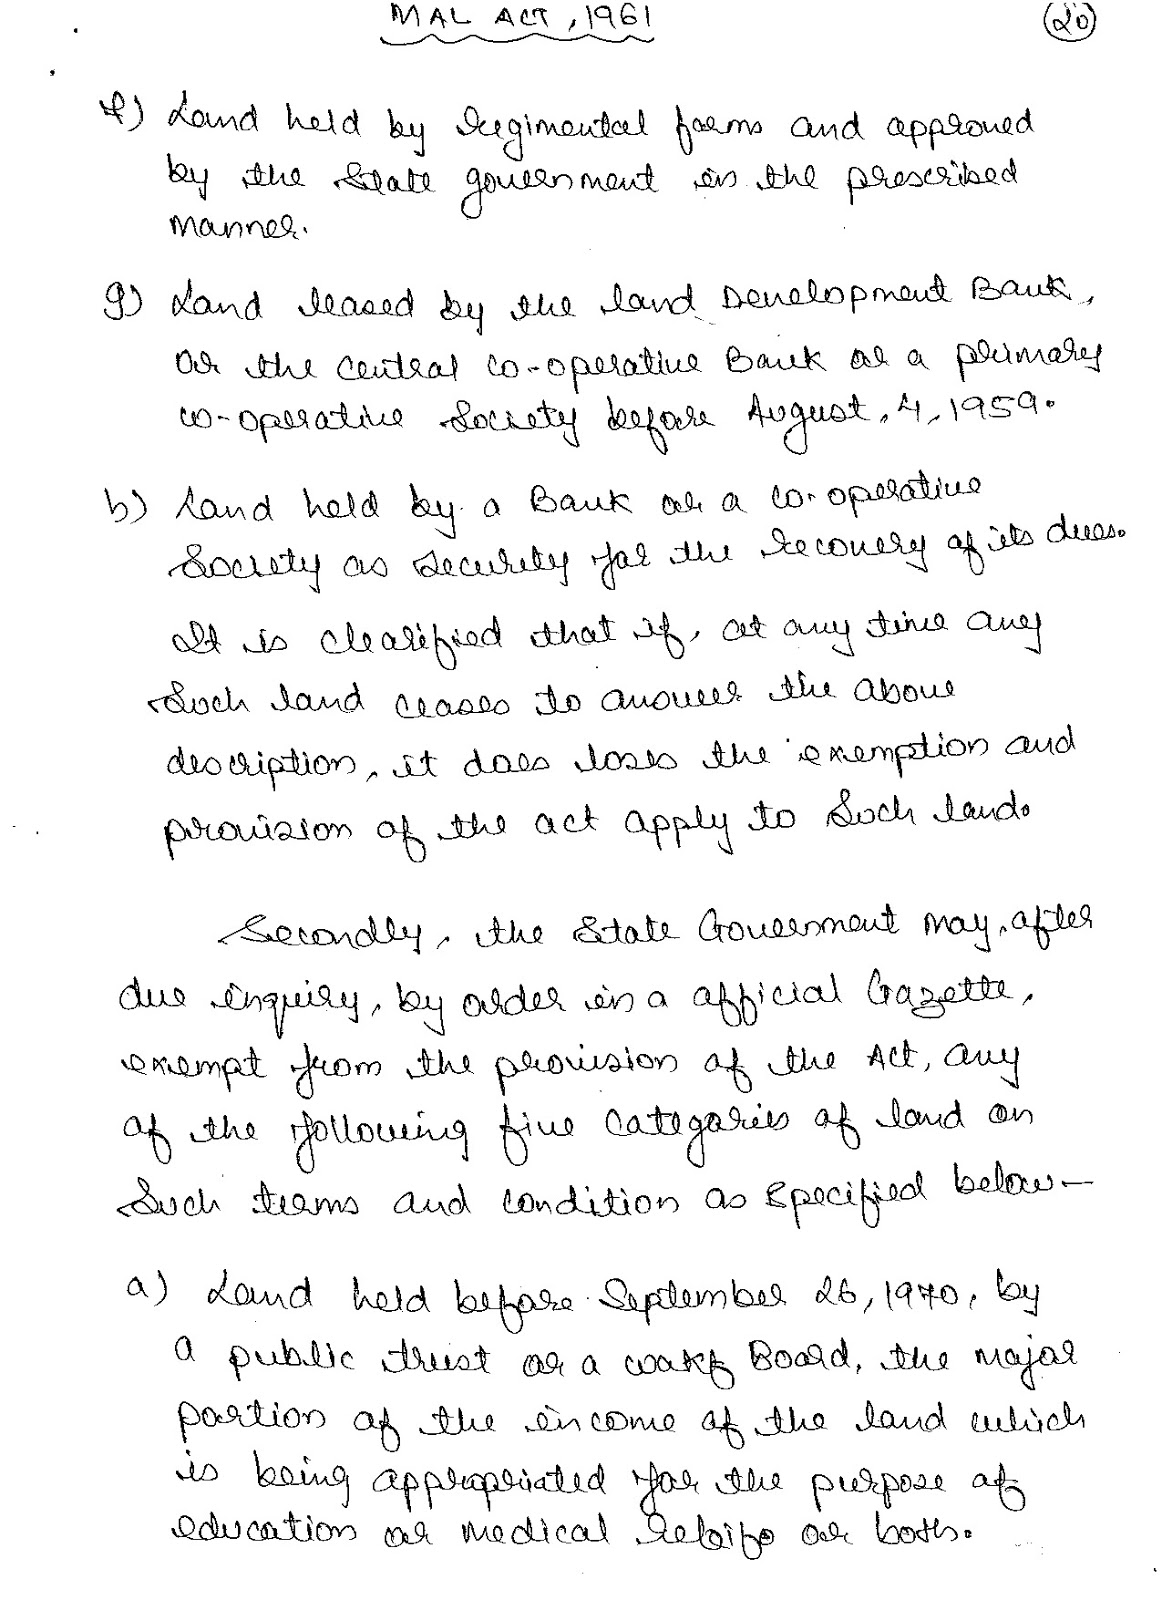 MAL ACT, 1961
20
f) Land held by regimental farms and approved
by the State government in the prescribed
manner.
g) Land leased by the land Development Bank,
or the central co-operative Bank or a primary
co-operative Society before August, 4, 1959.
h) Land held by a Bank or a co-operative
Society as security for the recovery of its dues.
It is clearified that if, at any time any
Such land ceases to answer the above
description, it does loses the exemption and
provision of the act apply to Such land.
Secondly, the State Government may, after
due enquiry, by order in a official Gazette,
exempt from the provision of the Act, any
of the following five categories of land on
Such terms and condition as specified below—
a) Land held before September 26, 1970, by
a public trust or a wakf Board, the major
portion of the income of the land which
is being appropriated for the purpose of
education or medical or both.